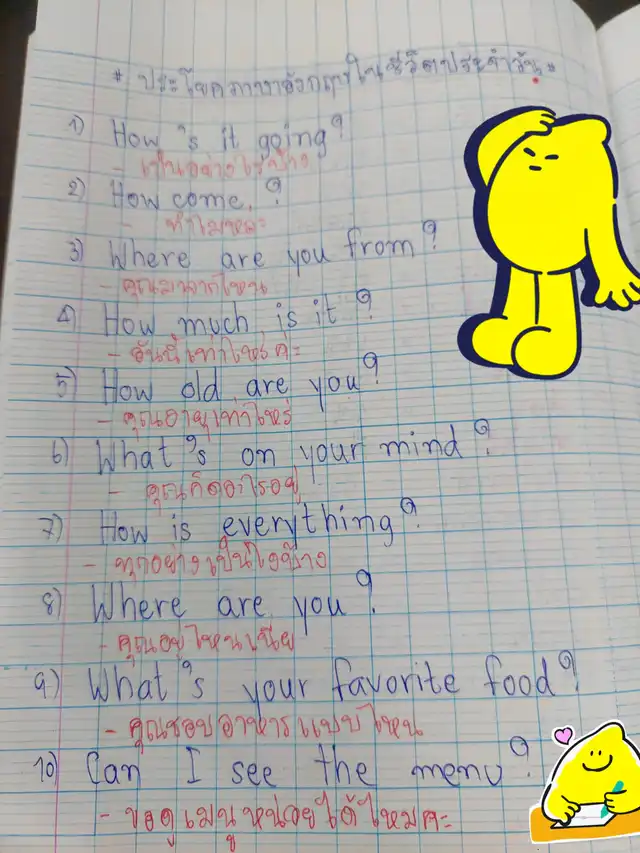 * ประโยคภาษาอังกฤษในชีวิตประจำวัน *
1) How 's it going?
- เป็นอย่างไรบ้าง
2) How come ?
- ทำไมหละ
3) Where are you from?
- คุณมาจากไหน
4) How much is it ?
- อันนี้เท่าไหร่คะ
5) How old are you?
- คุณอายุเท่าไหร่
6) What's on your mind?
- คุณคิดอะไรอยู่
7) How is everything?
- ทุกอย่างเป็นไงบ้าง
8) Where are you?
- คุณอยู่ไหนเนี่ย
9) What's your favorite food?
- คุณชอบอาหารแบบไหน
10) Can I see the menu?
- ขอดูเมนูหน่อยได้ไหมคะ